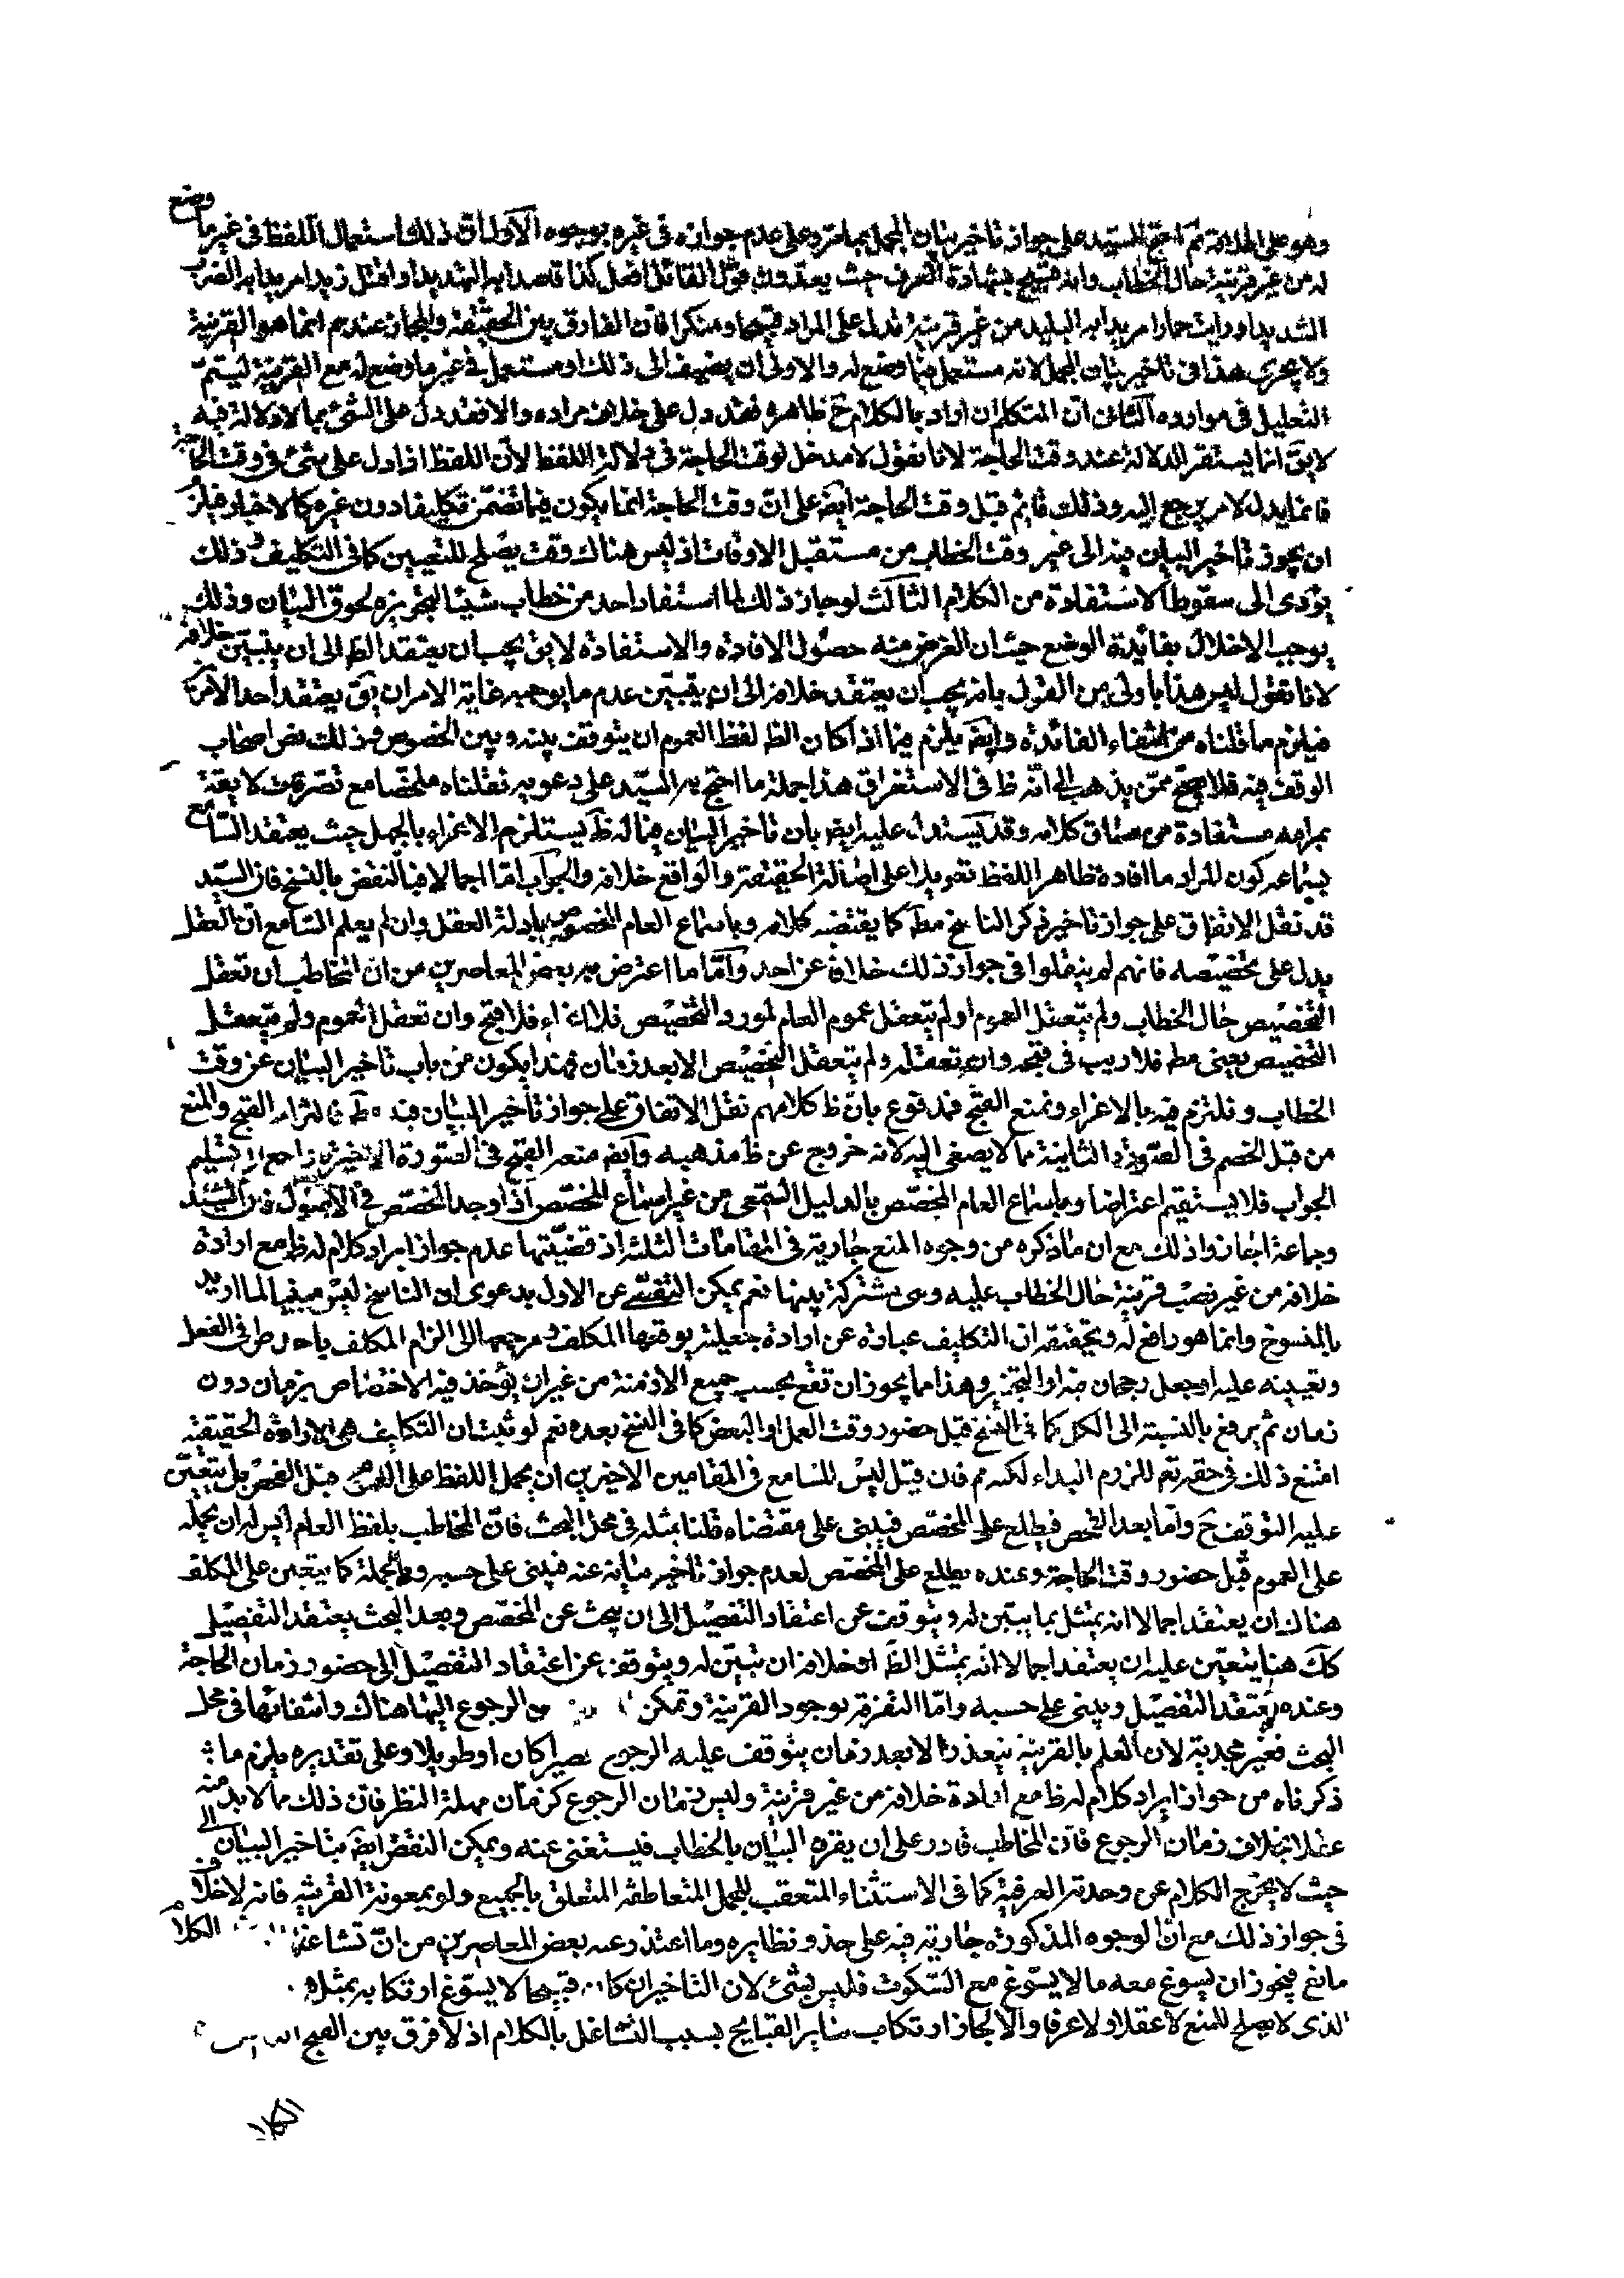 وهو على اطلاقه ثم احتج السيد على جواز تاخير بيان المجمل بما مر وعلى عدم جوازه فى غيره بوجوه الاول ان ذلك استعمال اللفظ فى غير ما وضع
له من غير قرينة حال الخطاب وانه قبيح بشهادة العرف حيث يعدون قول القائل افعل كذا قاصدا به التهديد او اقتل زيدا مريدا به الضرب
الشديد او رايت حمارا مريدا به البليد من غير قرينة تدل على المراد قبيحا ومنكرا فان الفارق بين الحقيقة والمجاز عندهم انما هو القرينة
ولا يجرى هذا فى تاخير بيان المجمل لانه مستعمل فيما وضع له والاولى ان يضيف الى ذلك او مستعمل فى غير ما وضع له مع القرينة ليتم
التعليل فى موارده الثانى ان المتكلم ان اراد بالكلام خ ظاهره فقد دل على خلاف مراده والا فقد دل على الشئ بما لا دلالة فيه
لايق انما يستقر الدلالة عند وقت الحاجة لانا نقول لا مدخل لوقت الحاجة فى دلالة اللفظ لان اللفظ اذا دل على شئ فى وقت الحاجة
فانما يدل لامر يرجع اليه وذلك قائم قبل وقت الحاجة ايضا على ان وقت الحاجة انما يكون فيما تضمن تكليفا دون غيره كالاخبار فيلزم
ان يجوز تاخير البيان فيه الى غير وقت الخطاب من مستقبل الاوقات اذ ليس هناك وقت يصلح للتعيين كما فى التكليف وذلك
يؤدى الى سقوط الاستفادة من الكلام الثالث لو جاز ذلك لما استفاد احد من خطاب شيئا لتجويزه لحوق البيان وذلك
يوجب الاخلال بفائدة الوضع حيث ان الغرض منه حصول الافادة والاستفادة لايق يجب ان يعتقد الظ الى ان يتبين خلافه
لانا نقول ليس هذا باولى من القول بانه يجب ان يعتقد خلافه الى ان يتبين عدم ما يوجبه غاية الامر ان يق يعتقد احد الامرين
فيلزم ما قلناه من انتفاء الفائدة وايضا يلزم فيما اذا كان الظ لفظ العموم ان يتوقف بينه وبين الخصوص وذلك نص اصحاب
الوقف فيه فلا يصح ممن يذهب الى انه ظ فى الاستغراق هذا جملة ما احتج به السيد على دعويه نقلناه ملخصا مع تصرفات لايقة
بمرامه مستفادة من مساق كلامه وقد يستدل عليه ايضا بان تاخير البيان فيما له ظ يستلزم الاغراء بالجهل حيث يعتقد السامع
بسماعه كون المراد ما افاده ظاهر اللفظ تعويلا على اصالة الحقيقة والواقع خلافه والجواب اما اجمالا فبالنقض بالنسخ فان السيد
قد نقل الاتفاق على جواز تاخير ذكر الناسخ مط كما يقتضيه كلامه وباسماع العام المخصوص بادلة العقل وان لم يعلم السامع ان العقل
يدل على تخصيصه فانهم لم ينقلوا فى جواز ذلك خلافا عن احد واما ما اعترض به بعض المعاصرين من ان المخاطب ان تعقل
التخصيص حال الخطاب ولم يتعقل العموم او لم يتعقل عموم العام لمورد التخصيص فلا اغراء فلا قبح وان تعقل العموم ولم يتعقل
التخصيص يعنى مط فلا ريب فى قبحه وان تعقله ولم يتعقل التخصيص الا بعد زمان فهذا يكون من باب تاخير البيان عن وقت
الخطاب ونلتزم فيه بالاغراء ونمنع القبح فمدفوع بان ظ كلامهم نقل الاتفاق على جواز تاخير البيان فيه مط فالتزام القبح والمنع
من قبل الخصم فى الصورة الثانية مما لا يصغى اليه لانه خروج عن ظ مذهبه وايضا منعه القبح فى الصورة الاخيرة راجع الى تسليم
الجواب فلا يستقيم اعتراضا وباسماع العام المخصص بالدليل السمعى من غير اسماع المخصص اذا وجد المخصص فى الاصول فان السيد
وجماعة اجازوا ذلك مع ان ما ذكره من وجوه المنع جارية فى المقامات الثلثة اذ قضيتها عدم جواز ايراد كلام له ظ مع ارادة
خلافه من غير نصب قرينة حال الخطاب عليه وهى مشتركة بينها نعم يمكن التفصى عن الاول بدعوى ان الناسخ ليس مبينا لما اريد
بالمنسوخ وانما هو رافع له وتحقيقه ان التكليف عبارة عن ارادة جعلية يوقعها المكلف ومرجعها الى الزام المكلف باحد طرفى الفعل
وتعيينه عليه او جعل رجحان فيه او التخيير وهذا مما يجوز ان تقع بحسب جميع الازمنة من غير ان يؤخذ فيه الاختصاص بزمان دون
زمان ثم يرفع بالنسبة الى الكل كما فى النسخ قبل حضور وقت العمل او البعض كما فى النسخ بعده نعم لو ثبت ان التكليف هى الارادة الحقيقية
امتنع ذلك فى حقه تع للزوم البداء لكنه مم فان قيل ليس للسامع فى المقامين الاخيرين ان يحمل اللفظ على العموم قبل الفحص بل يتعين
عليه التوقف ح واما بعد الفحص فيطلع على المخصص فيبنى على مقتضاه قلنا بمثله فى محل البحث فان المخاطب بلفظ العام ليس له ان يحمله
على العموم قبل حضور وقت الحاجة وعنده يطلع على المخصص لعدم جواز تاخير بيانه عنه فيبنى على حسبه وبالجملة كما يتعين على المكلف
هناك ان يعتقد اجمالا انه يمتثل بما يبين له ويتوقف عن اعتقاد التفصيل الى ان يبحث عن المخصص وبعد البحث يعتقد التفصيل
كك هنا يتعين عليه ان يعتقد اجمالا انه يمتثل الظ او خلافه ان تبين له ويتوقف عن اعتقاد التفصيل الى حضور زمان الحاجة
وعنده يعتقد التفصيل ويبنى على حسبه واما التفرقة بوجود القرينة وتمكن من الرجوع اليها هناك وانتفائها فى محل
البحث فغير مجدية لان العلم بالقرينة يتعذر الا بعد زمان يتوقف عليه الرجوع قصيرا كان او طويلا وعلى تقديره يلزم ما
ذكرناه من جواز ايراد كلام له ظ مع ارادة خلافه من غير قرينة وليس زمان الرجوع كزمان مهلة النظر فان ذلك مما لا بد منه
عقلا بخلاف زمان الرجوع فان المخاطب قادر على ان يقرن البيان بالخطاب فيستغنى عنه ويمكن النقض ايضا بتاخير البيان الى
حيث لا يخرج الكلام عن وحدته العرفية كما فى الاستثناء المتعقب للجمل المتعاطفة المتعلق بالجميع ولو بمعونة القرينة فانه لا خلاف
فى جواز ذلك مع ان الوجوه المذكورة جارية فيه على حذو نظايره وما اعتذر عنه بعض المعاصرين من ان تشاغله الكلام
مانع فيجوز ان يسوغ معه ما لا يسوغ مع السكوت فليس بشئ لان التاخير ان كان قبيحا لا يسوغ ارتكابه بمثله
الذى لا يصلح للمنع لا عقلا ولا عرفا والا لجاز ارتكاب ساير القبايح بسبب التشاغل بالكلام اذ لا فرق بين القبح